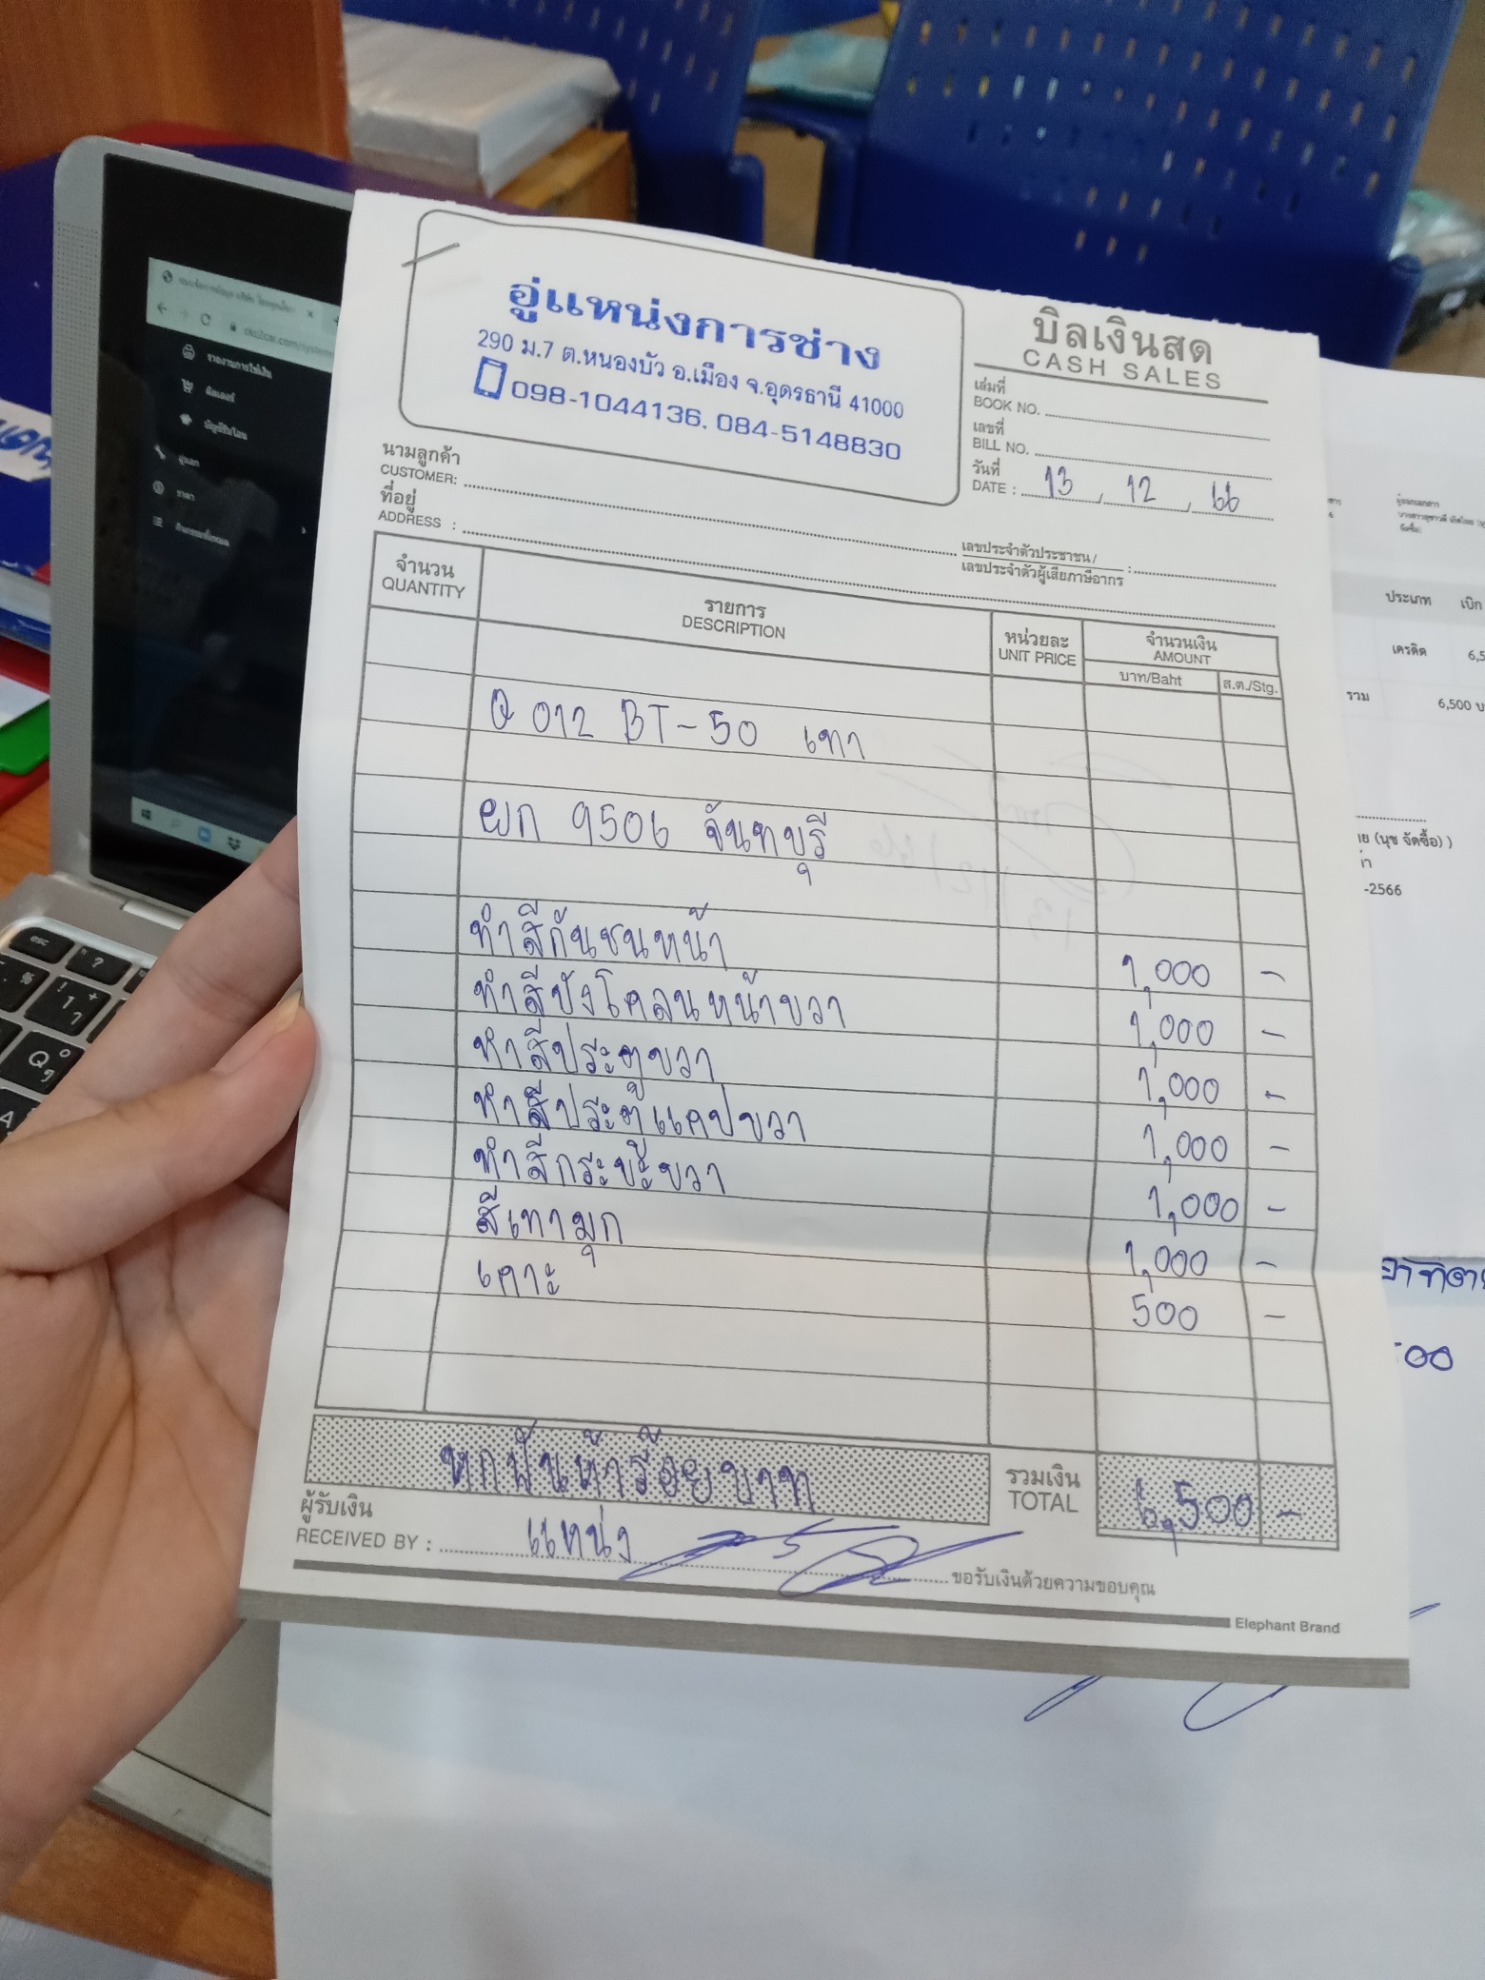 อู่แหน่งการช่าง
290 ม.7 ต.หนองบัว อ.เมือง จ.อุดรธานี 41000
098-1044136, 084-5148830
บิลเงินสด
CASH SALES
เล่มที่
BOOK NO.
เลขที่
BILL NO.
วันที่
DATE : 13 , 12 , 66
นามลูกค้า
CUSTOMER:
ที่อยู่
ADDRESS :
เลขประจำตัวประชาชน/
เลขประจำตัวผู้เสียภาษีอากร :
จำนวน
QUANTITY
รายการ
DESCRIPTION
หน่วยละ
UNIT PRICE
จำนวนเงิน
AMOUNT
บาท/Baht ส.ต./Stg.
Q 012 BT-50 เทา
ผก 9506 จันทบุรี
ทำสีกันชนหน้า 1,000 -
ทำสีบังโคลนหน้าขวา 1,000 -
ทำสีประตูขวา 1,000 -
ทำสีประตูแคปขวา 1,000 -
ทำสีกระบะขวา 1,000 -
สีเทามุก 1,000 -
เคาะ 500 -
หกพันห้าร้อยบาท
รวมเงิน
TOTAL
6,500 -
ผู้รับเงิน
RECEIVED BY : แหน่ง
ขอรับเงินด้วยความขอบคุณ
Elephant Brand
ประเภท เบิก
เครดิต
รวม 6,500
(นุช จัดซื้อ) )
-2566
esc
Q
A